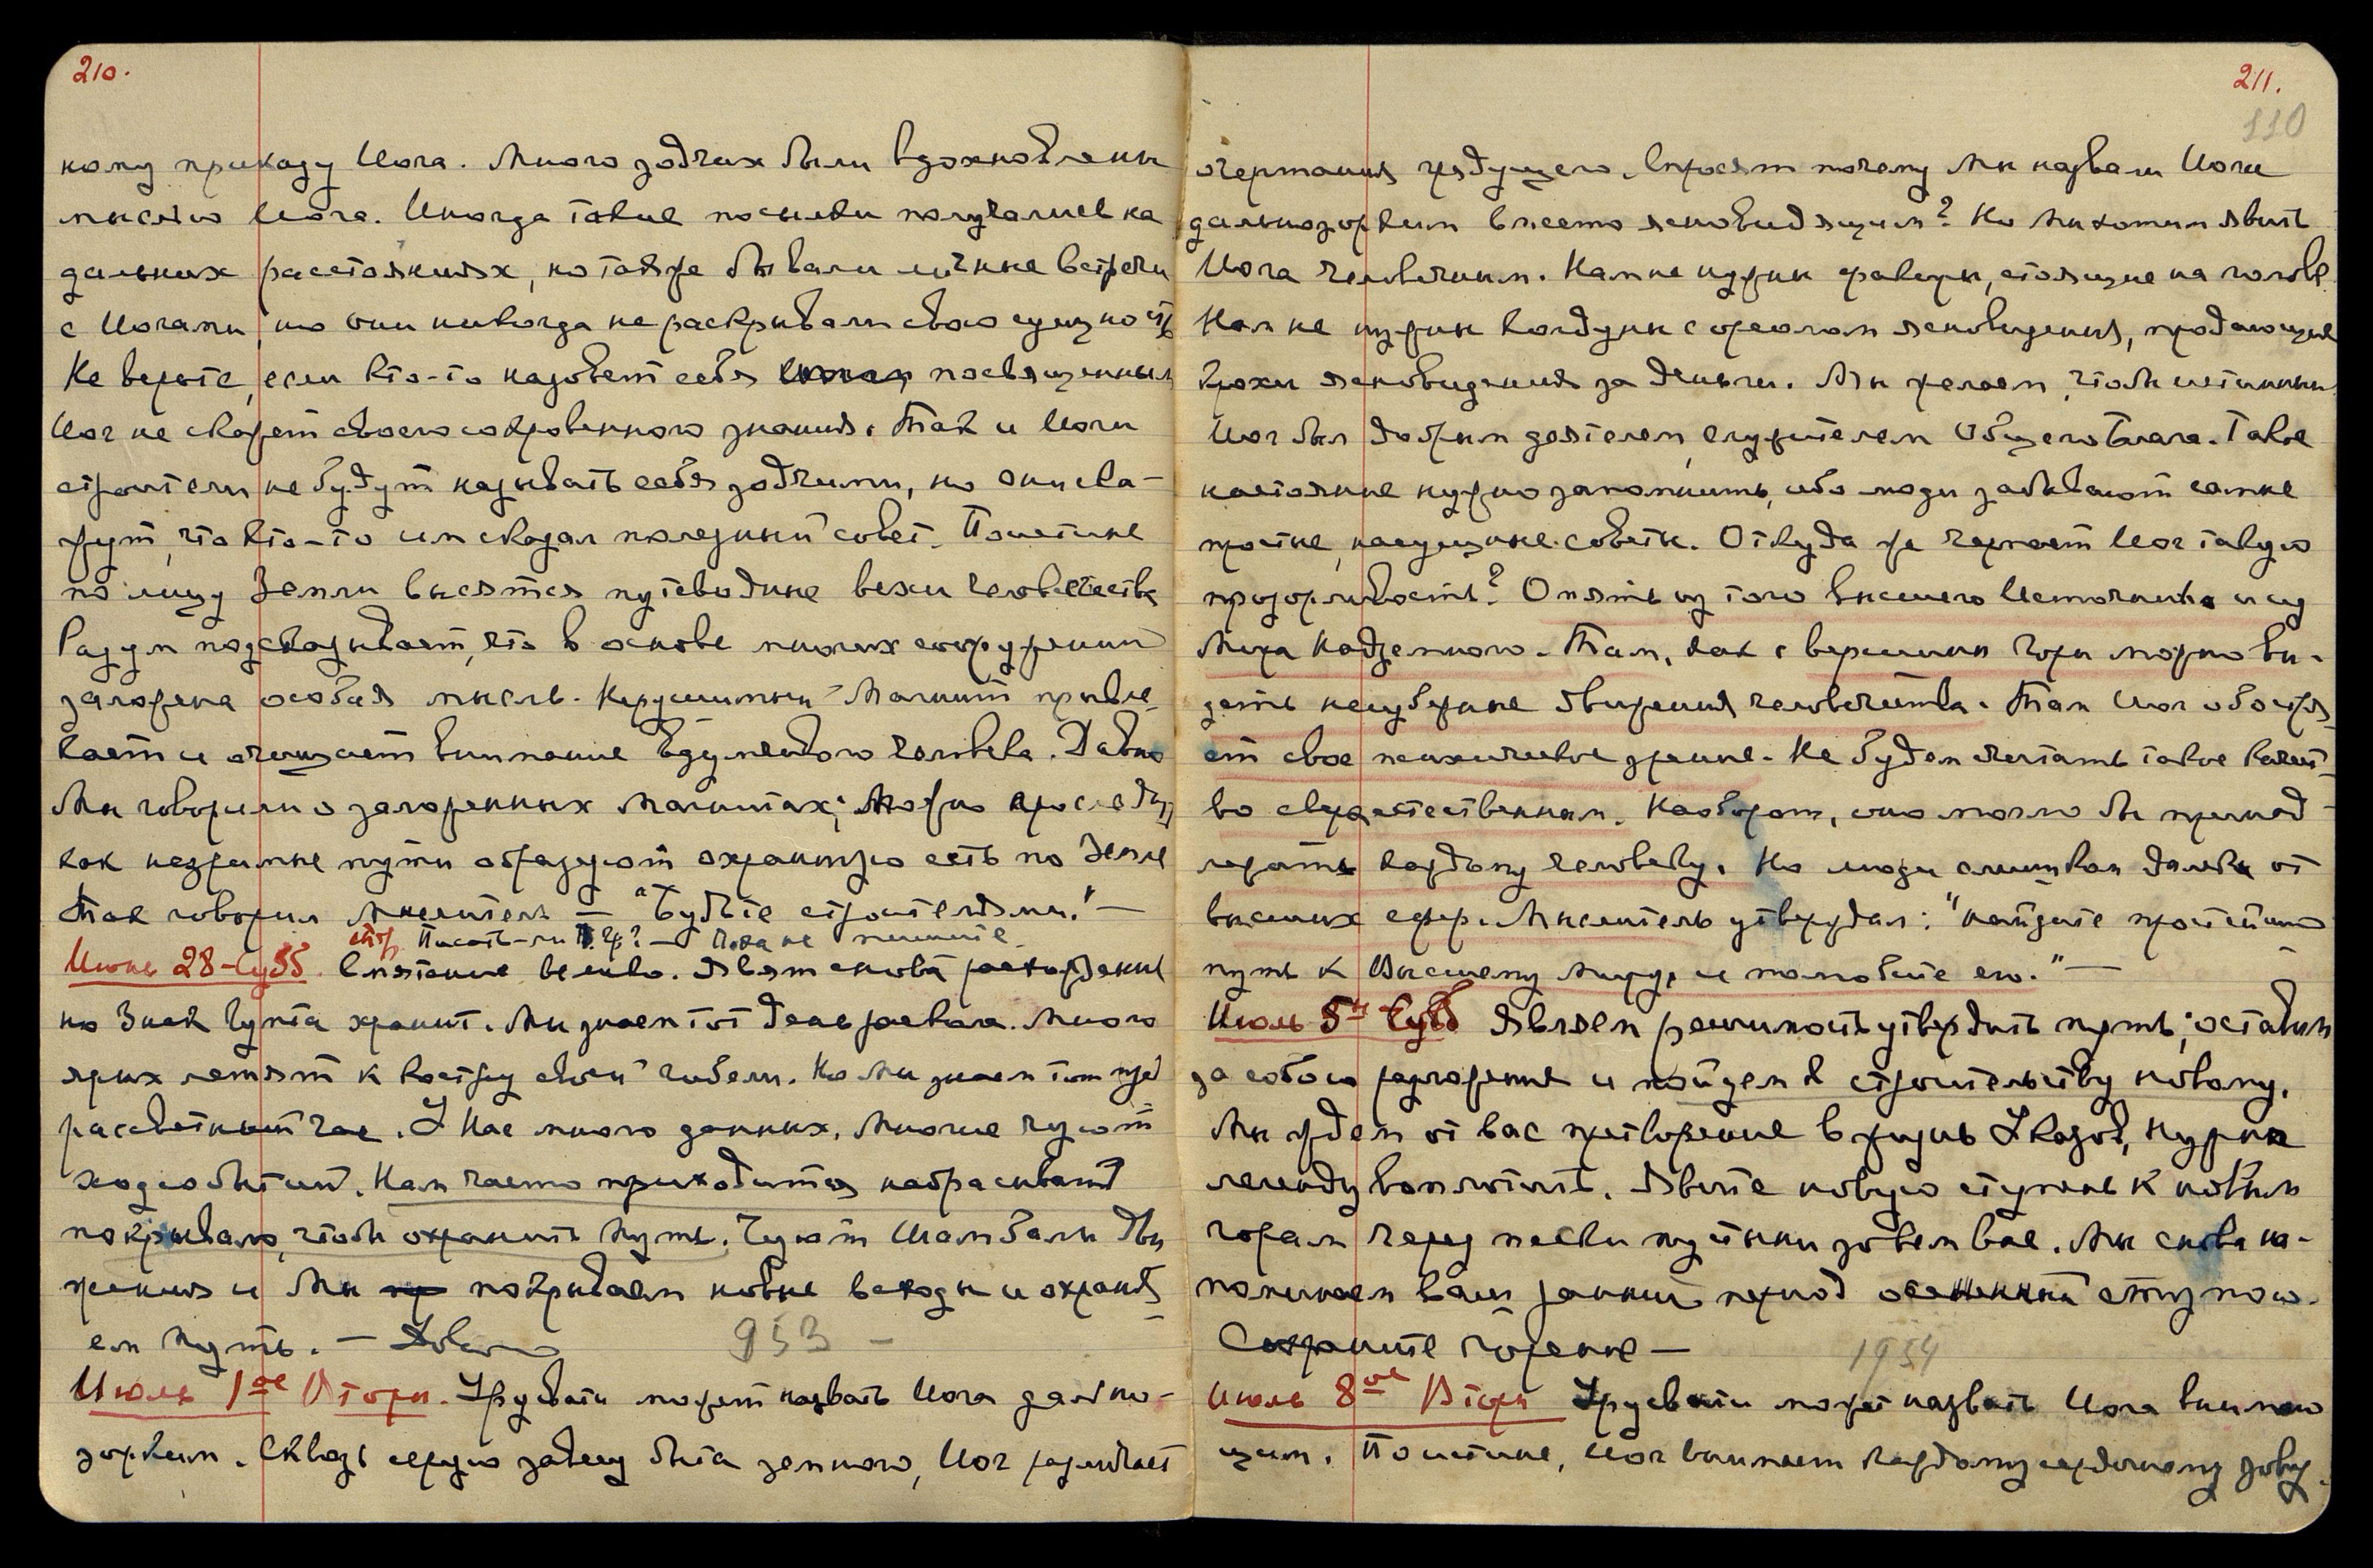 210.
ному приказу Йога. Много зодчих были вдохновлены
мыслью Йога. Иногда такие посылки получались на
дальних расстояниях, но также бывали личные встречи
с Йогами, но они никогда не раскрывали свою сущность
Не верьте, если кто-то назовет себя посвященным
Йог не скажет своего сокровенного знания. Так и Йоги
строители не будут называть себя зодчими, но они ска-
жут, что кто-то им сказал полезный совет. Поистине
по лицу Земли высятся путеводные вехи человечества
Разум подсказывает, что в основе многих сооружений
заложена особая мысль. Нерушимый Магнит привле-
кает и очищает внимание вдумчивого человека. Давно
Мы говорили о заложенных магнитах; Можно проследить
как незримые пути образуют охранную сеть по Земле
Так говорил Мыслитель — "Будьте строителями." —
Писать-ли — Пока не пишите.
Июнь 28-Субб. Смятение велико. Явят снова расхождения
но Знак хранит. Мы знаем тот день раскола. Много
ярых летят к костру своей гибели. Но Мы знаем тот пред
рассветный час. У Нас много данных. Многие чуют
ход событий. Нам часто приходится набрасывать
покрывало, чтоб охранить путь. Чуют Шамбалы дви
жения и Мы покрываем новые всходы и охраня
ем путь. — Довольно 953 —
Июль 1ое Вторн. Урусвати может назвать Йога дально-
зорким. Сквозь серую завесу быта земного, Йог различает
211.
110
очертания грядущего. Спросят почему Мы назвали Йога
дальнозорким вместо ясновидящим? Но Мы хотим явить
Йога человечным. Нам не нужны факиры, стоящие на голове
Нам не нужны колдуны с ореолом ясновидения, продающие
крохи ясновидения за деньги. Мы желаем, чтоб истинный
Йог был добрым деятелем, служителем Общего Блага. Такое
состояние нужно запомнить, ибо люди забывают самые
простые, насущные советы. Откуда же черпает Йог такую
прозорливость? Опять из того высшего Источника и из
Мира Надземного. Там, как с вершины горы можно ви-
деть неизбежные движения человечества. Там Йог обостря
ет свое психическое зрение. Не будем считать такое качест-
во сверхъестественным. Наоборот, оно могло бы принад-
лежать каждому человеку. Но люди слишком далеки от
высших сфер. Мыслитель утверждал: "найдите простейший
путь к Высшему миру, и полюбите его." —
Июль 5го Субб Являем решимость утвердить путь; оставим
за собою разложение и пойдем к строительству новому.
Мы ждем от вас претворение в жизнь Указов, нужно
легенду воплотить. Явите новую ступень к новым
горам через пески пустыни зовем вас. Мы снова на-
поминаем ваш ранний период
Сохраните горение — 1954
Июль 8ое Вторн Урусвати может назвать Йога внимаю
щим. Поистине, Йог внимает каждому сердечному зову.